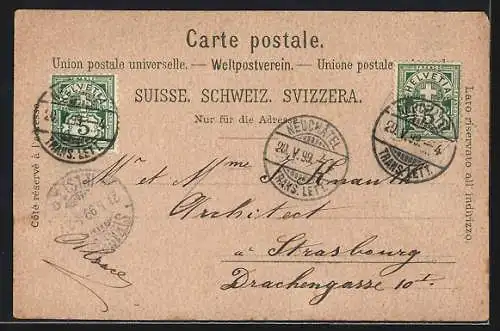 Carte postale.
Union postale universelle. — Weltpostverein. — Unione postale
SUISSE. SCHWEIZ. SVIZZERA.
Nur für die Adresse
Côté réservé à l'adresse.
Lato riservato all indirizzo.
HELVETIA
5
TRANS. LETT.
HELVETIA
TRANS. LETT.
NEUCHATEL
20. V. 99.
TRANS. LETT.
Mr et Mme Knauth
Architect
à Strasbourg
Drachengasse 10I.
Alsace